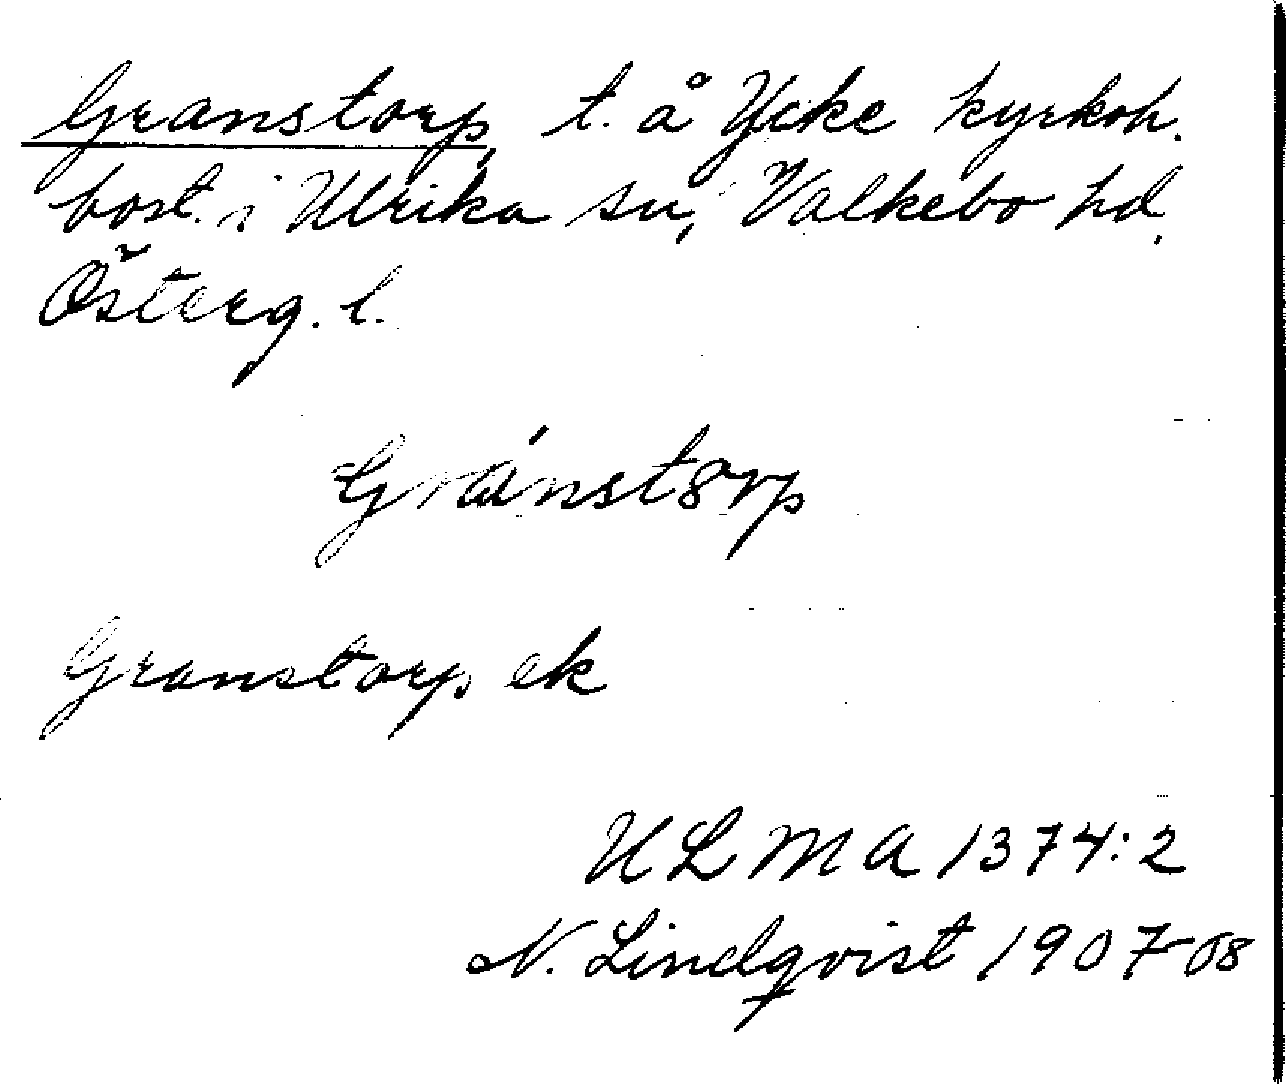 Granstorp t. å Ycke kyrkoh.
bost. i Ulrika sn, Valkebo hd,
Österg. l.
Gránstorp
Granstorp ek
ULMA 1374:2
N. Lindqvist 1907-08